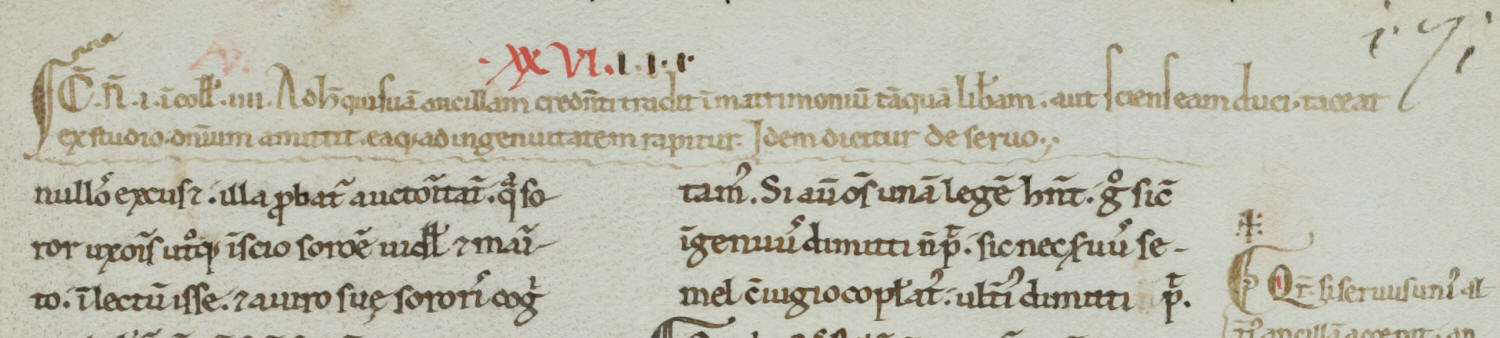 XXVI.I.I.I
C̄.n̄.i. ī coll̄.iiii. Ad hc̄ qui suā ancillam credn̄ti tradit ī matrimoniū tāquā lib̄am. aut sciens eam duci. taceat
ex studio. dn̄ium amittit. eaq; ad ingenuitatem rapitur. Idem dicitur de seruo.
nullō excusꝛ. illa ꝓbat̄ auctoītat̄. qͣ so-
ror uxoīs ut̊q; īscio soroē uidꝉꝉ ⁊ maī-
to. ī lectū isse. ⁊ auiro suę sororī cog̍
tam̍. Si aū oēs unā legē hn̄t. g̊ sic̄
īgenuū dimitti n̄ p̄. sic nec suū se-
mel c̄iugio copl̄at̍. ult̍i dimitti p̄.
Qr̄. si seruus uni̍ al-
ancillā accepit. an